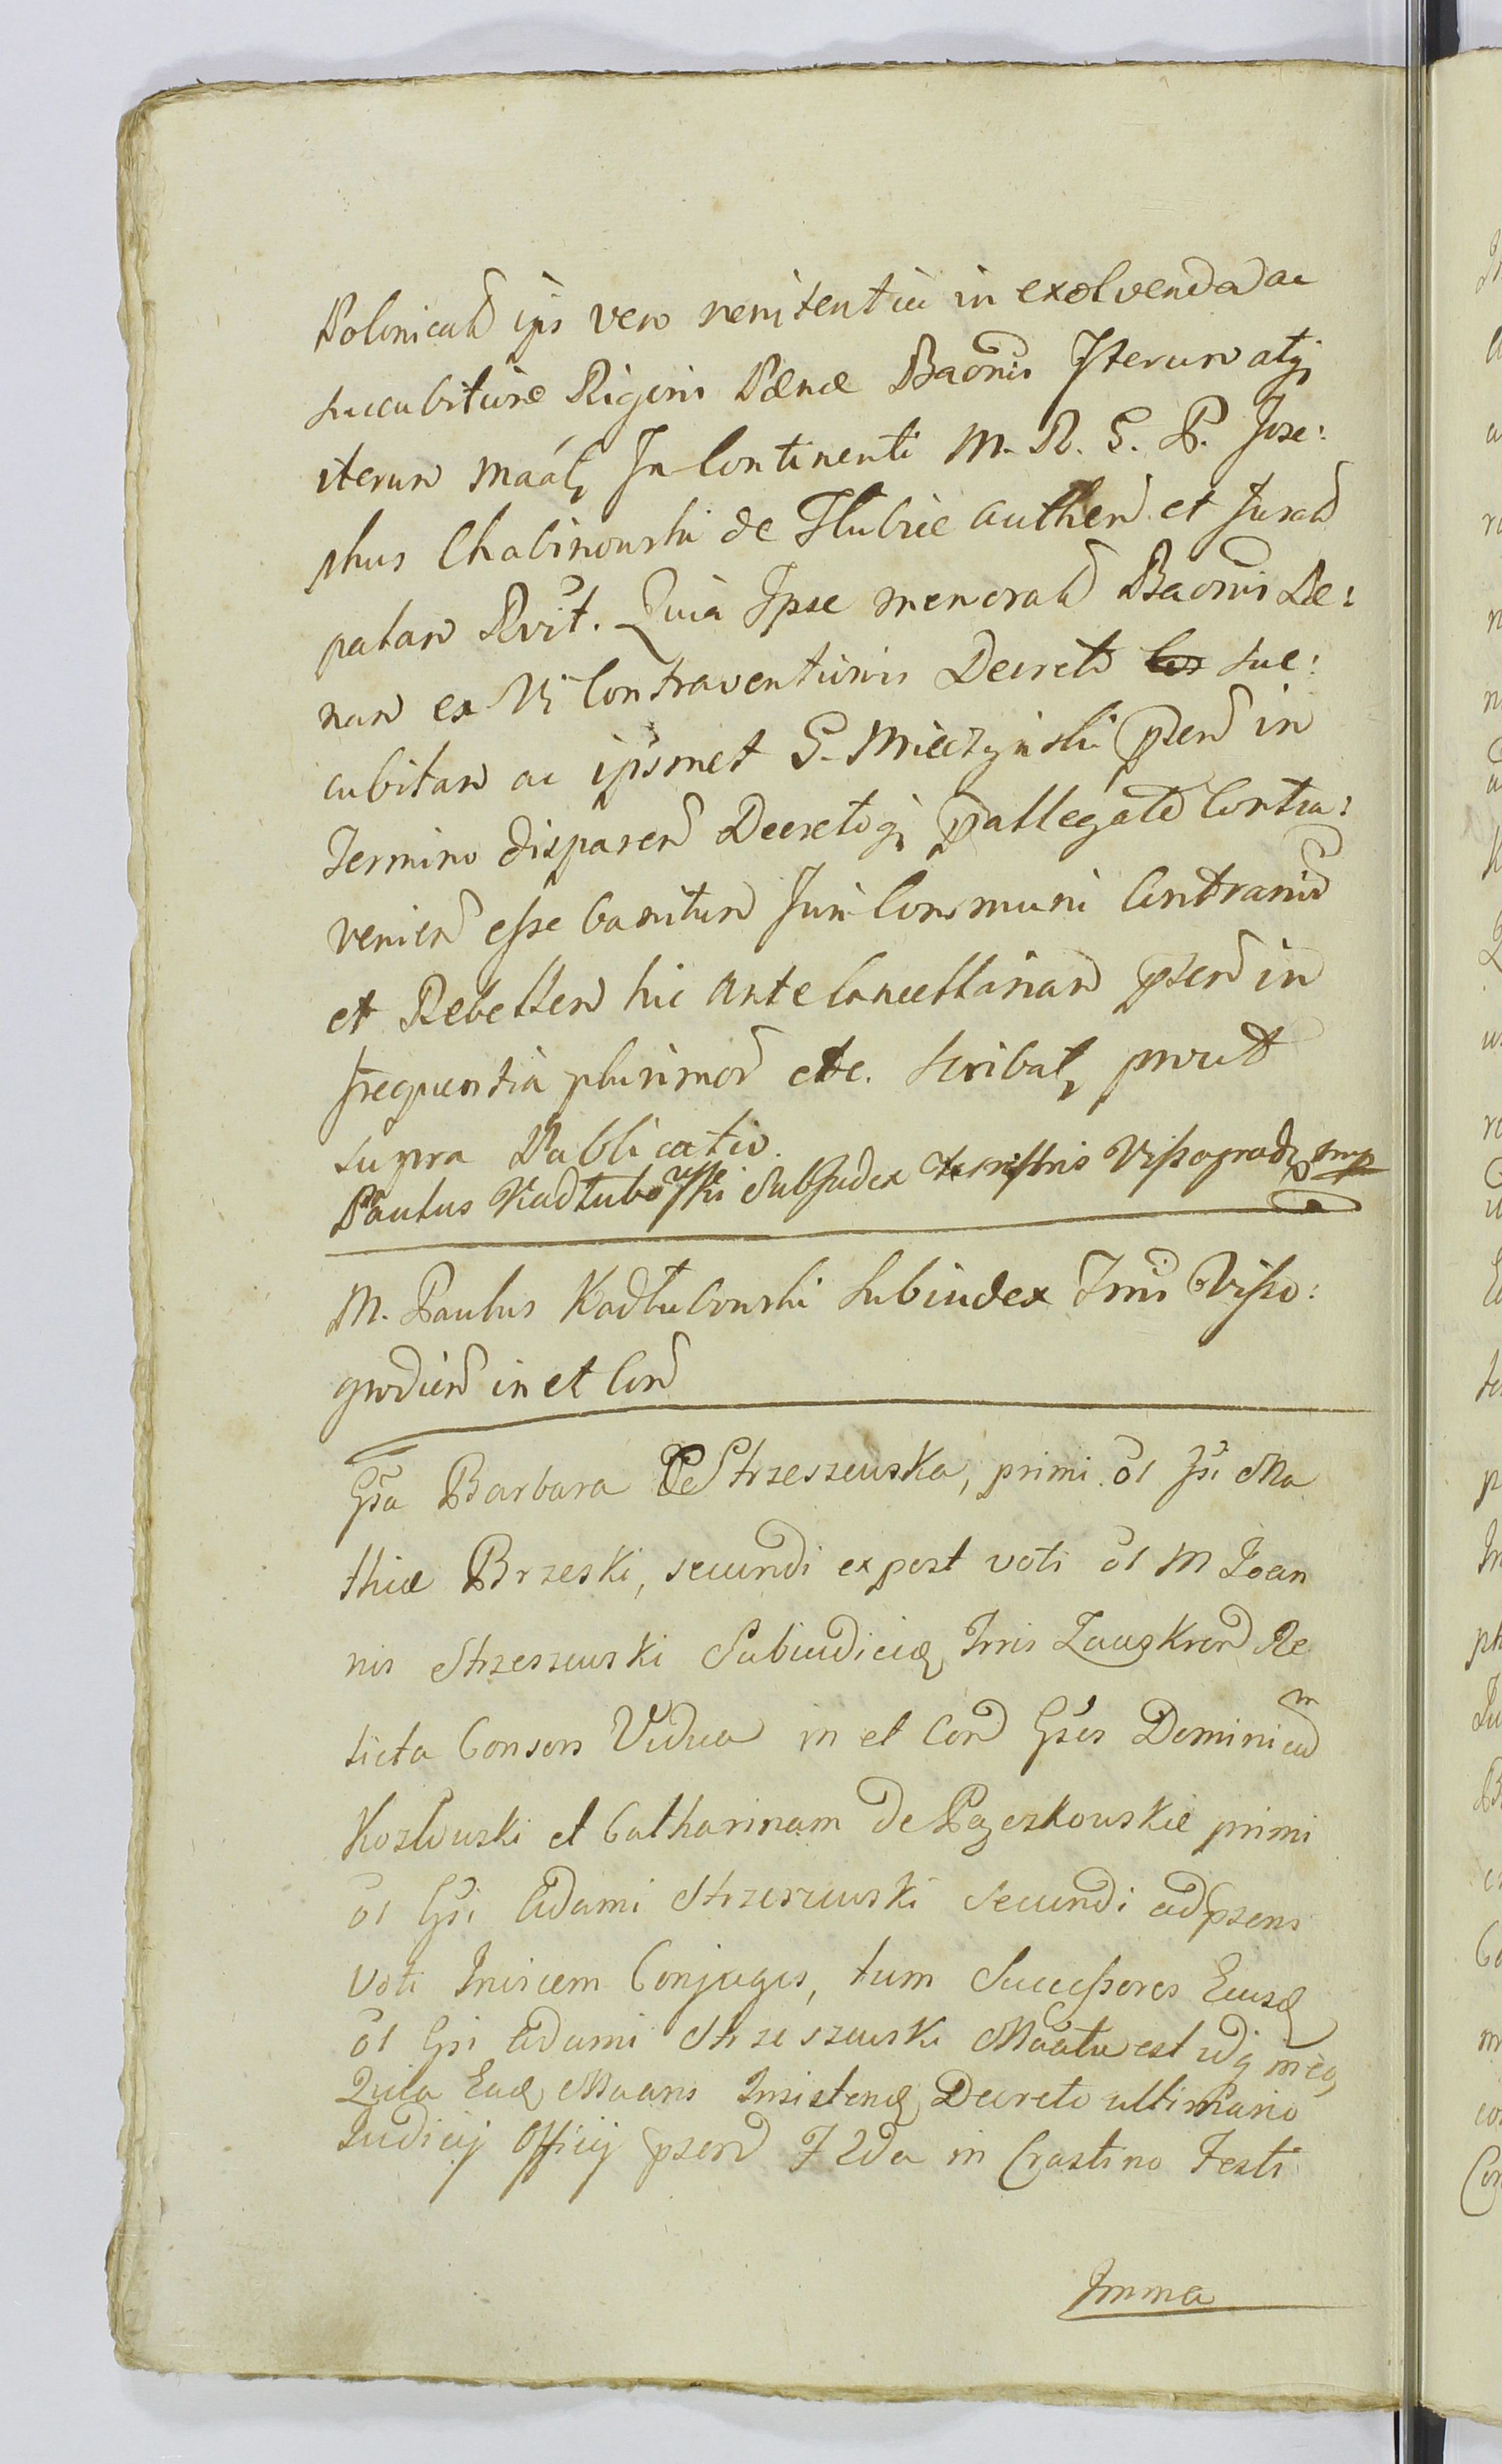 Polonicalᵈ ips vero renitentia in exolvenda ac
succubiture Rigoris Pænæ Baõnis Iterum atq;
iterum Maāt, In Continenti M. R. G. P. Jose:
phus Chabinowski de Hlubie authen et Jurat
patam Rvit. Quia Ipse memorat Baonis Pæ:
nam ex Vi Contraventionis Decreto suc:
cubitam ac ipsmet G. Mieczynski psen in
Termino disparen Decretoq; pallegato Contra:
venien esse banitum Juri Communi Contrariu
et Rebellem hic ante Cancellariam psen in
frequentia plurimor etc. Scribat, prout
supra Publicatio.
Paulus Kadłubowski Subjudex terrestris Vissograd mp
M. Paulus Kadłubowski Subiudex Trris Visso:
grodien in et Con
Gsa Barbara de Strzeszewska, primi ol Gsi Ma
thiæ Brzeski, secundi expost voti ol M Joan
nis Strzeszewski Subiudicis Trris Zauskren Re
licta Consors Vidua in et Con Gsos Dominicum
Kozłowski et Catharinam de Pączkowskie primi
ol Gsi Adami Strzeszewski secundi ad psens
Voti Invicem Conjuges, tum Successores Eiusd
ol Gsi Adami Strzeszewski Maatu est idq; meo
Quia Ead Maans Insistend Decreto ultimario
Judicij Officij psen F 2da in Crastino Festi
Imma